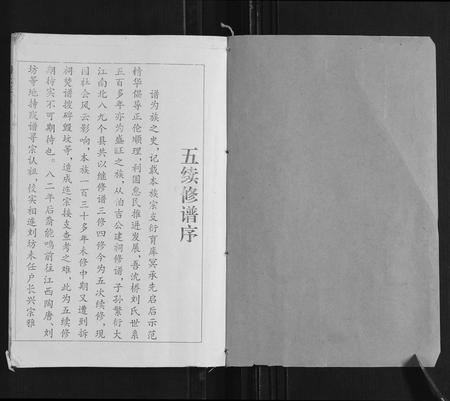 五续修谱序
谱为族之史，记载本族宗支衍育库冥承先启后示范
精华倡导正伦顺理，利国惠民推进发展，吾沈桥刘氏世系
五百多年亦为盛旺之族，从泊吉公建祠修谱，子孙繁衍大
江南北八九个县共以继修谱三修四修今为五次续修，现
因社会风云影响，本族一百三十多年未修中期又遭到拆
祠焚谱拨碑毁坟等，造成连宗接支查考之难，此为五续修
期待实不可期待也。八二年后裔能鸣前往江西陶唐、刘
坊等地持残谱寻宗认祖，径实相选刘坊未任户长兴宗雅